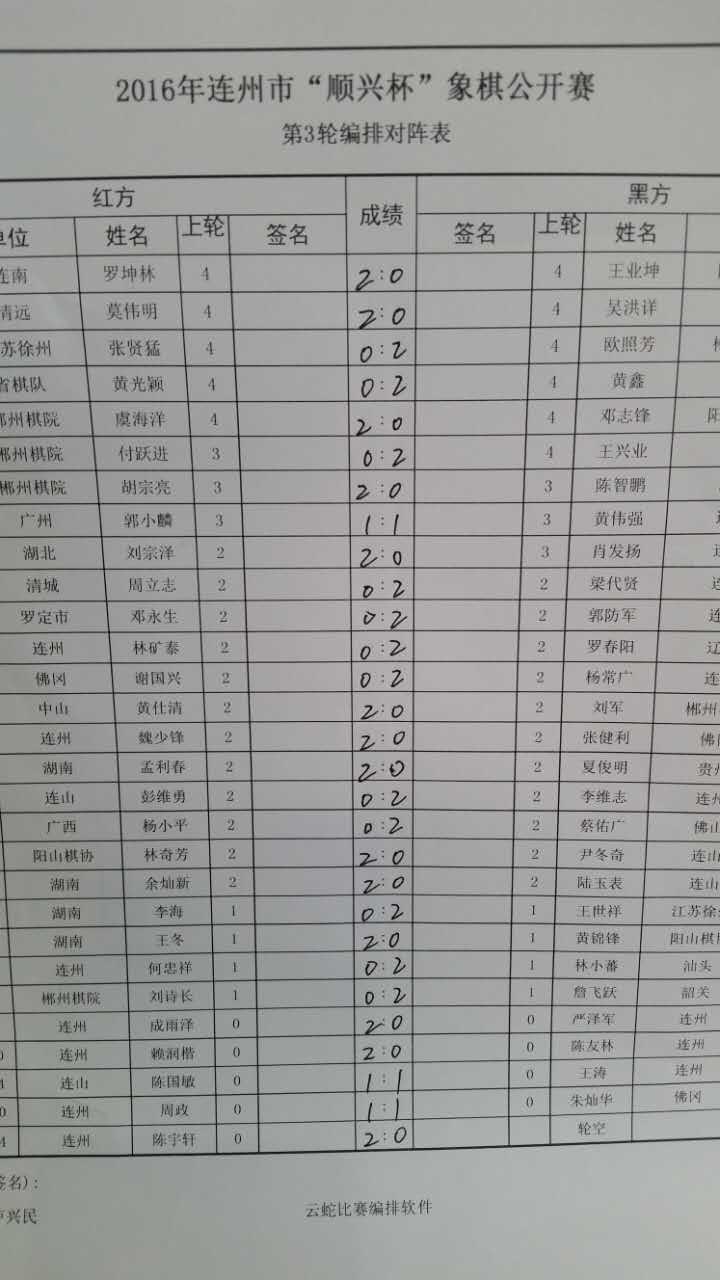 2016年连州市“顺兴杯”象棋公开赛
第3轮编排对阵表
红方 成绩 黑方
单位 姓名 上轮 签名 签名 上轮 姓名
连南 罗坤林 4 2:0 4 王业坤
清远 莫伟明 4 2:0 4 吴洪详
苏徐州 张贤猛 4 0:2 4 欧照芳
省棋队 黄光颖 4 0:2 4 黄鑫
郴州棋院 虞海洋 4 2:0 4 邓志锋 阳
郴州棋院 付跃进 3 0:2 4 王兴业
郴州棋院 胡宗亮 3 2:0 3 陈智鹏
广州 郭小麟 3 1:1 3 黄伟强
湖北 刘宗泽 2 2:0 3 肖发扬
清城 周立志 2 0:2 2 梁代贤 连
罗定市 邓永生 2 0:2 2 郭防军 连
连州 林矿泰 2 0:2 2 罗春阳 辽
佛冈 谢国兴 2 0:2 2 杨常广 连
中山 黄仕清 2 2:0 2 刘军 郴州
连州 魏少锋 2 2:0 2 张健利 佛
湖南 孟利春 2 2:0 2 夏俊明 贵州
连山 彭维勇 2 0:2 2 李维志 连州
广西 杨小平 2 0:2 2 蔡佑广 佛山
阳山棋协 林奇芳 2 2:0 2 尹冬奇 连山
湖南 余灿新 2 2:0 2 陆玉表 连山
湖南 李海 1 0:2 1 王世祥 江苏徐州
湖南 王冬 1 2:0 1 黄锦锋 阳山棋协
连州 何忠祥 1 0:2 1 林小蕃 汕头
郴州棋院 刘诗长 1 0:2 1 詹飞跃 韶关
连州 成雨泽 0 2:0 0 严泽军 连州
0 连州 赖润楷 0 2:0 0 陈友林 连州
1 连山 陈国敏 0 1:1 0 王涛 连州
0 连州 周政 0 1:1 0 朱灿华 佛冈
4 连州 陈宇轩 0 2:0 轮空
签名):
兴民
云蛇比赛编排软件